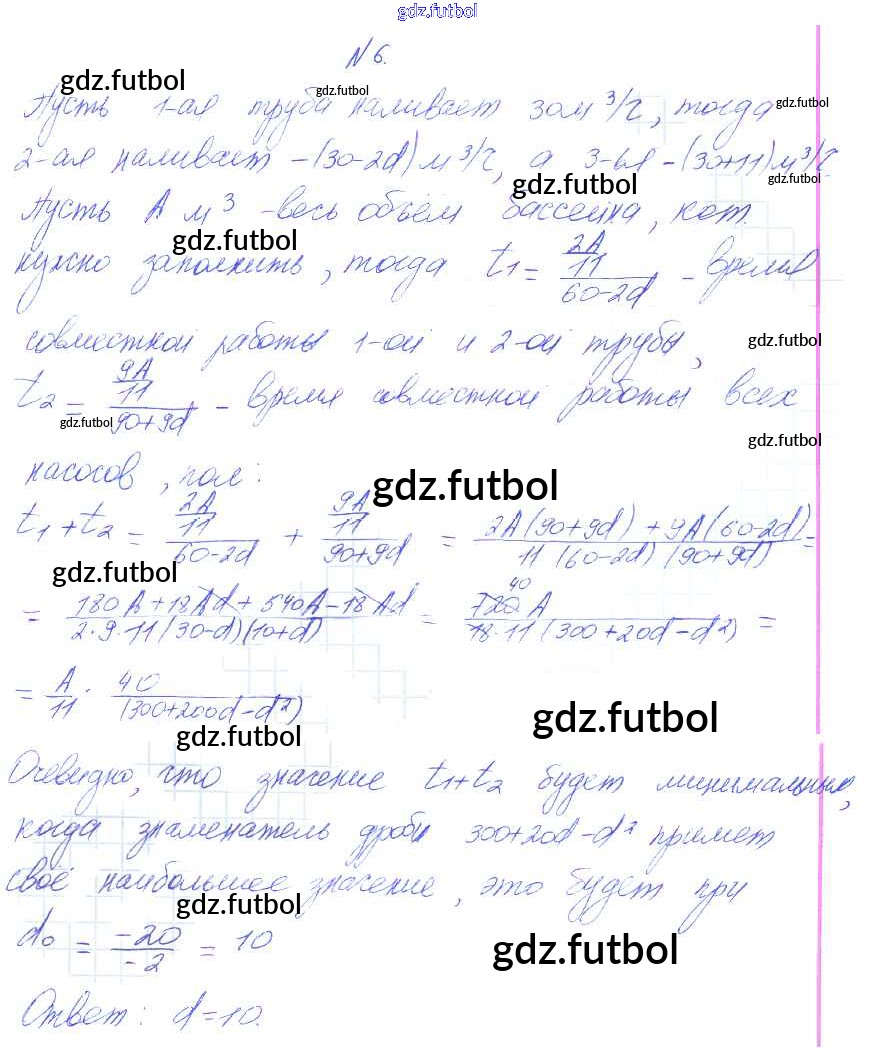 gdz.futbol
N 6.
gdz.futbol gdz.futbol
Пусть 1-ая труба наливает 30 м³/г, тогда gdz.futbol
2-ая наливает – (30-2d) м³/г, а 3-ья – (30+11) м³/г
gdz.futbol gdz.futbol
Пусть A м³ - весь объём бассейна, кот.
gdz.futbol
нужно заполнить, тогда t₁ = (2A/11)/(60-2d) - время
совместной работы 1-ой и 2-ой трубы, gdz.futbol
t₂ = (9A/11)/(90+9d) - время совместной работы всех
gdz.futbol gdz.futbol
насосов, пол:
gdz.futbol
t₁+t₂ = (2A/11)/(60-2d) + (9A/11)/(90+9d) = (2A(90+9d)+9A(60-2d))/(11(60-2d)(90+9d)) =
gdz.futbol
= (180A+18Ad+540A-18Ad)/(2·9·11(30-d)(10+d)) = (720 40 A)/(18·11(300+20d-d²)) =
= A/11 · 40/(300+200d-d²)
gdz.futbol gdz.futbol
Очевидно, что значение t₁+t₂ будет минимальным,
когда знаменатель дроби 300+20d-d² примет
своё наибольшее значение, это будет при
gdz.futbol
d₀ = -20/-2 = 10
gdz.futbol
Ответ: d=10.